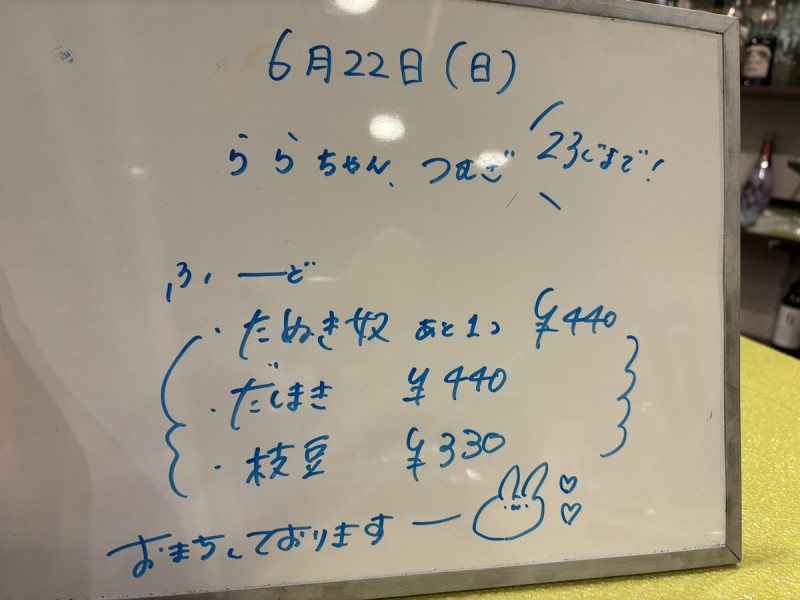 6月22日(日)
ららちゃん、つむぎ 23じまで!
ふーど
・たぬき奴 あと1つ ¥440
・だしまき ¥440
・枝豆 ¥330
おまちしておりますー